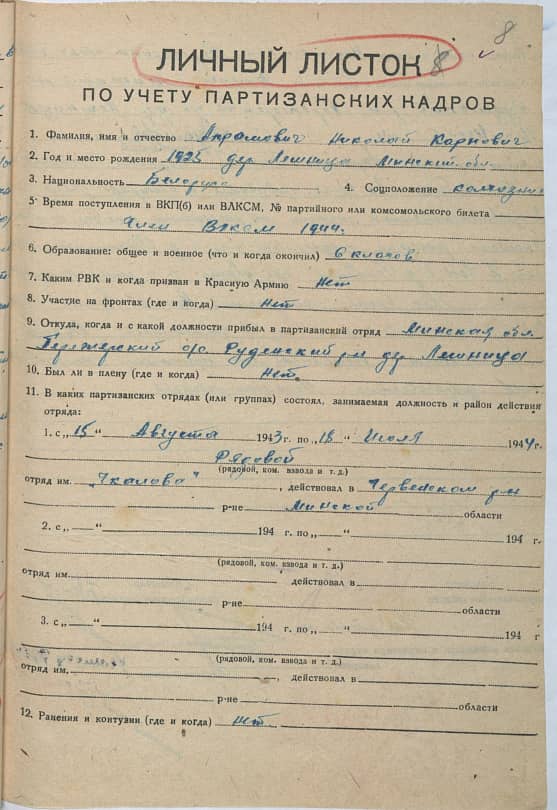 8
ЛИЧНЫЙ ЛИСТОК
ПО УЧЕТУ ПАРТИЗАНСКИХ КАДРОВ
1. Фамилия, имя и отчество Акрамович Николай Карпович
2. Год и место рождения 1925 дер. Лешница Минской обл.
3. Национальность Белорус 4. Соцположение колхозник
5. Время поступления в ВКП(б) или ВЛКСМ, № партийного или комсомольского билета
Член ВЛКСМ 1944.
6. Образование: общее и военное (что и когда окончил) 6 классов
7. Каким РВК и когда призван в Красную Армию Нет
8. Участие на фронтах (где и когда) Нет
9. Откуда, когда и с какой должности прибыл в партизанский отряд Минская обл.
с/с. Руденский р-н дер Лешница
10. Был ли в плену (где и когда) Нет.
11. В каких партизанских отрядах (или группах) состоял, занимаемая должность и район действия
отряда:
1. с „15“ Августа 1943 г. по „18“ Июля 1944 г.
Рядовой
(рядовой, ком. взвода и т. д.)
отряд им. „Чкалова“, действовал в Червенском р-н
р-не Минской области
2. с „ “ 194 г. по „ “ 194 г.
(рядовой, ком. взвода и т. д.)
отряд им. действовал в
р-не области
3. с „ “ 194 г. по „ “ 194 г
(рядовой, ком. взвода и т. д.)
отряд им. , действовал в
р-не области
12. Ранения и контузии (где и когда) Нет